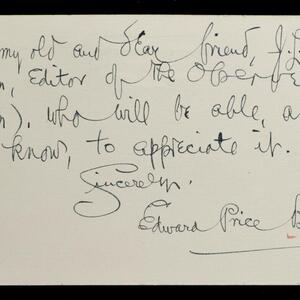 my old and dear friend, J.L
n, Editor of the Observe
n), who will be able, a
know, to appreciate it.
Sincerely.
Edward Price B